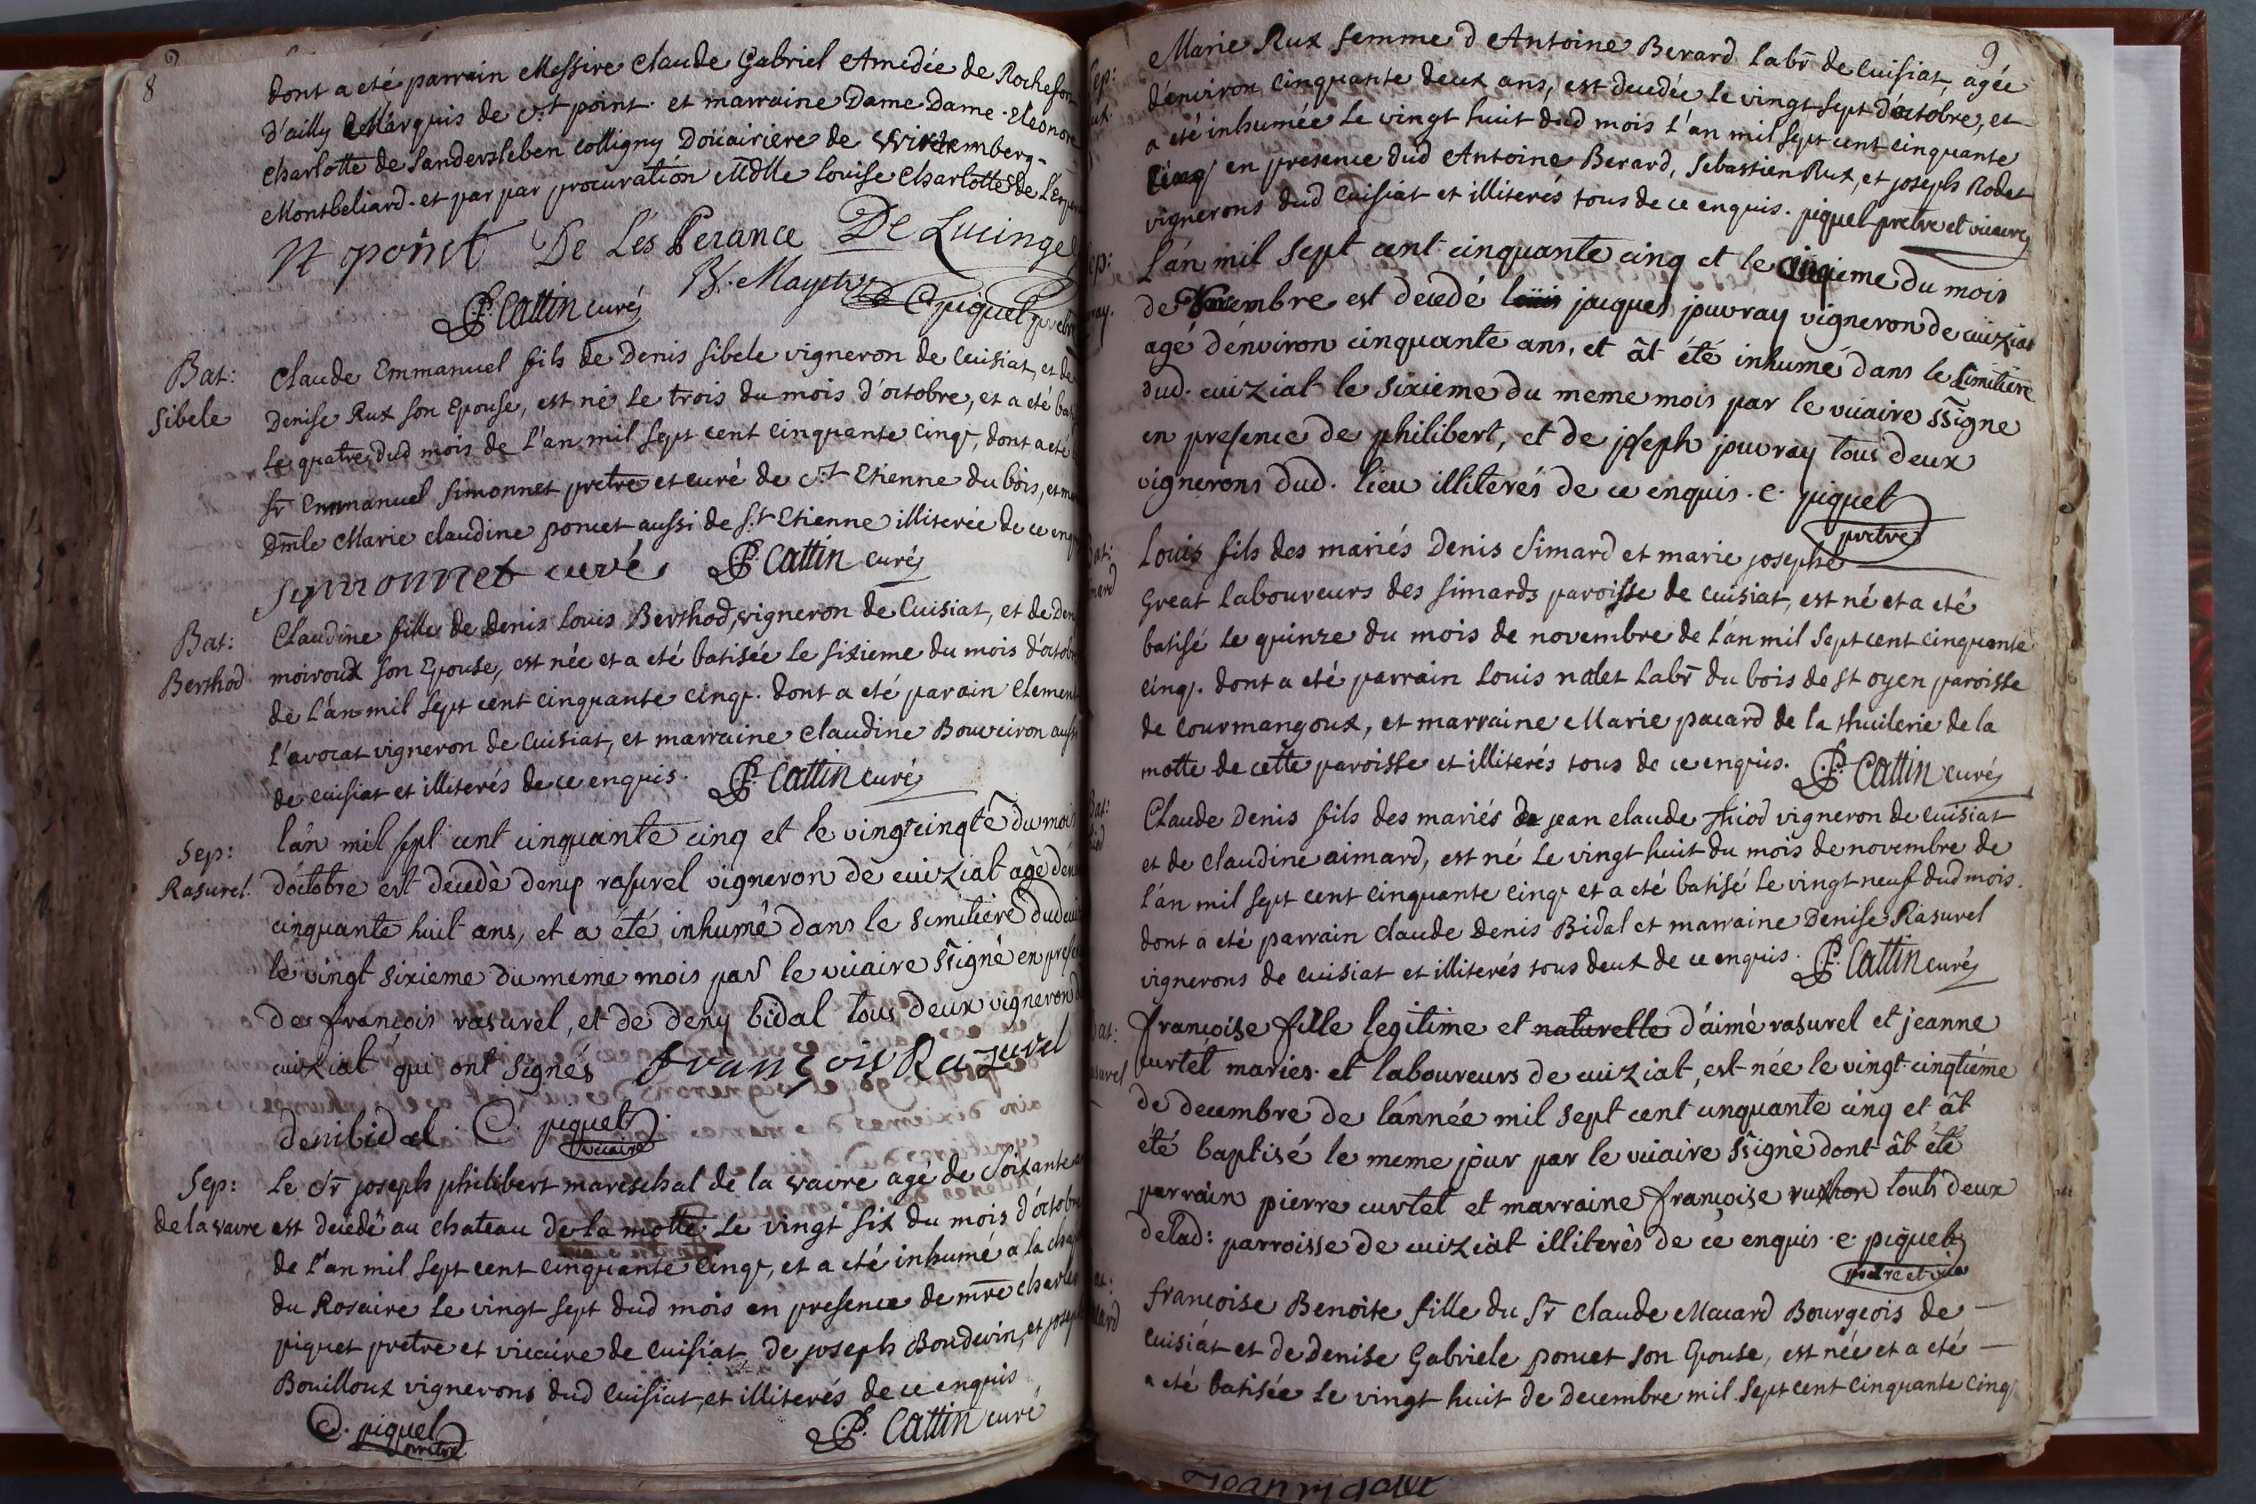 8
dont a eté parrain Messire Claude Gabriel Amedée de Rochefort
d'ailly Marquis de St point. et marraine Dame Dame Eleonore
Charlotte de Sandersleben Colligny Doüairiere de Wirtemberg
Montbeliard. et par par procuration Mdlle Louise Charlotte de L'Esper
St point De Les Perance De Lucinge
P. Cattin curé C piquet pretre
Bat:
Sibele
Claude Emmanuel fils de Denis Sibele vigneron de Cuisiat, et de
Denise Rux son Epouse, est né le trois du mois d'octobre, et a eté bat
le quatre dud mois de l'an mil sept cent cinquante cinq, dont a eté
Sr Emmanuel Simonnet pretre et curé de St Etienne du bois, et ma
Dmle Marie Claudine poncet aussi de St Etienne illiterée de ce enq
Symonnet curé P. Cattin curé
Bat:
Berthod
Claudine fille de Denis Louis Berthod, vigneron de Cuisiat, et de Den
moiroux son Epouse, est née et a eté batisée le sixieme du mois d'octob
de l'an mil sept cent cinquante cinq. dont a eté parain Clement
l'avocat vigneron de Cuisiat, et marraine Claudine Bouveiron aussi
de cuisiat et illiterés de ce enquis. P. Cattin curé
Sep:
Rasurel.
l'an mil sept cent cinquante cinq et le vingtcinqte du mois
d'octobre est decedè deny rasurel vigneron de cuiziat agè d'en
cinquante huit ans, et a été inhumé dans le simitiere dud cui
le vingt sixieme du meme mois par le vicaire ssigné en prese
de françois rasurel, et de deny bidal tous deux vigneron d
cuiziat qui ont signés françois Razurel
deni bidal. C. piquet
vicaire
Sep:
de la vavre
Le Sr joseph philibert mareschal de la vavre agé de soixante a
est decedé au chateau de la motte le vingt six du mois d'octobre
de l'an mil sept cent cinquante cinq, et a eté inhumé a la chap
du Rosaire le vingt sept dud mois en presence de mre charles
piquet pretre et vicaire de Cuisiat, de joseph Bondevin, et joseph
Bouilloux vignerons dud Cuisiat, et illiterés de ce enquis
C. piquet
pretre
P. Cattin curé
9
Marie Rux femme d'Antoine Berard labr de Cuisiat, agée
d'environ cinquante deux ans, est decedée le vingt sept d'octobre, et
a eté inhumée le vingt huit dud mois l'an mil sept cent cinquante
cinq en presence dud Antoine Berard, Sebastien Rux, et joseph Rodet
vignerons dud Cuisiat et illiterés tous de ce enquis. piquet pretre et vicaire
l'an mil sept cent cinquante cinq et le cinqieme du mois
de Novembre est decedé louis jacques jouvray vigneron de cuiziat
agé d'environ cinquante ans, et ât été inhumé dans le simitiere
dud. cuiziat le sixieme du meme mois par le vicaire ssigné
en presence de philibert, et de joseph jouvray tous deux
vignerons dud. lieu illiterés de ce enquis. c. piquet
pretre
Louis fils des mariés Denis Simard et marie josephe
Great laboureurs des simards paroisse de cuisiat, est né et a eté
batisé le quinze du mois de novembre de l'an mil sept cent cinquante
cinq. dont a eté parrain Louis nalet labr du bois de st oyen paroisse
de Courmangoux, et marraine Marie pacard de la thuilerie de la
motte de cette paroisse et illiterés tous de ce enquis. P. Cattin curé
Claude Denis fils des mariés de jean claude Thiod vigneron de cuisiat
et de claudine aimard, est né le vingt huit du mois de novembre de
l'an mil sept cent cinquante cinq et a eté batisé le vingt neuf dud mois.
dont a eté parrain Claude Denis Bidal et marraine Denise Rasurel
vignerons de cuisiat et illiterés tous deux de ce enquis. P. Cattin curé
françoise fille legitime et naturelle d'aimé rasurel et jeanne
curtet mariés et laboureurs de cuiziat, est née le vingt cinqtiéme
de decembre de l'année mil sept cent cinquante cinq et ât
été baptisé le meme jour par le vicaire ssigné dont ât été
parrain pierre curtet et marraine françoise ruthon touts deux
delad: parroisse de cuiziat illiterés de ce enquis. c. piquet
pretre et vic
françoise Benoite fille du Sr Claude Macard Bourgeois de
Cuisiat et de Denise Gabriele poncet son Epouse, est née et a eté
a eté batisée le vingt huit de decembre mil sept cent cinquante cinq